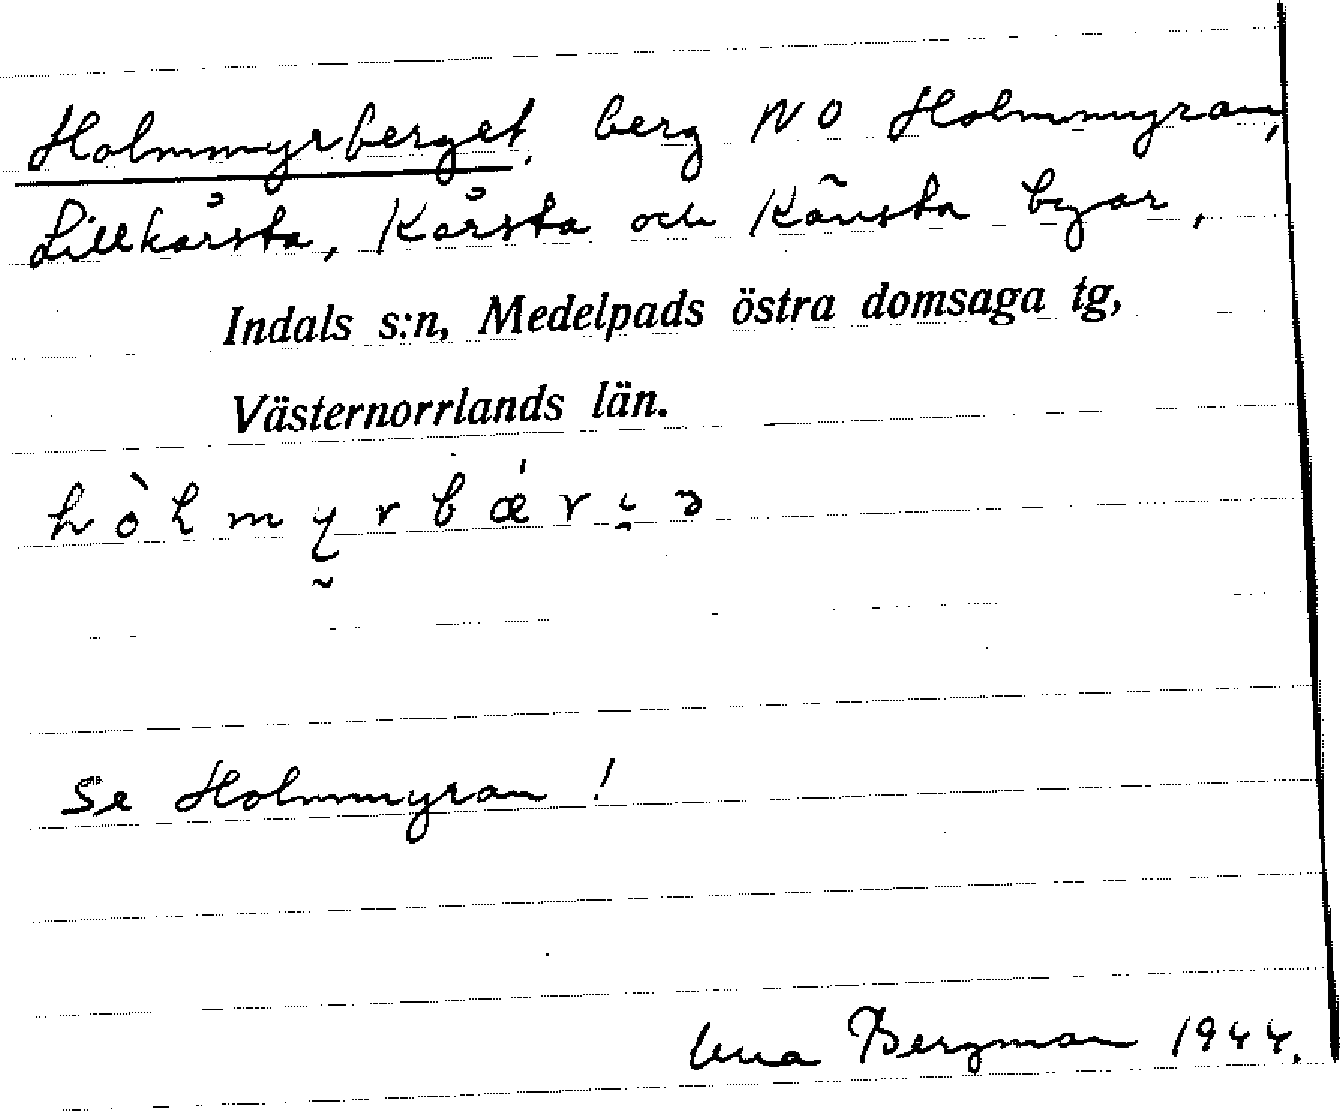 Holmmyrberget, berg NO Holmmyran,
Lillkårsta, Kårsta och Känsta byar,
Indals s:n, Medelpads östra domsaga tg,
Västernorrlands län.
hòlmyrbǽri̯ə
Se Holmmyran!
Bergman 1944.